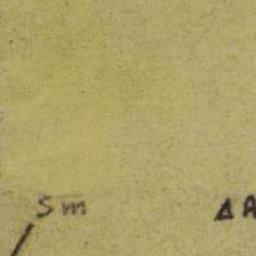 5 m
Δ A